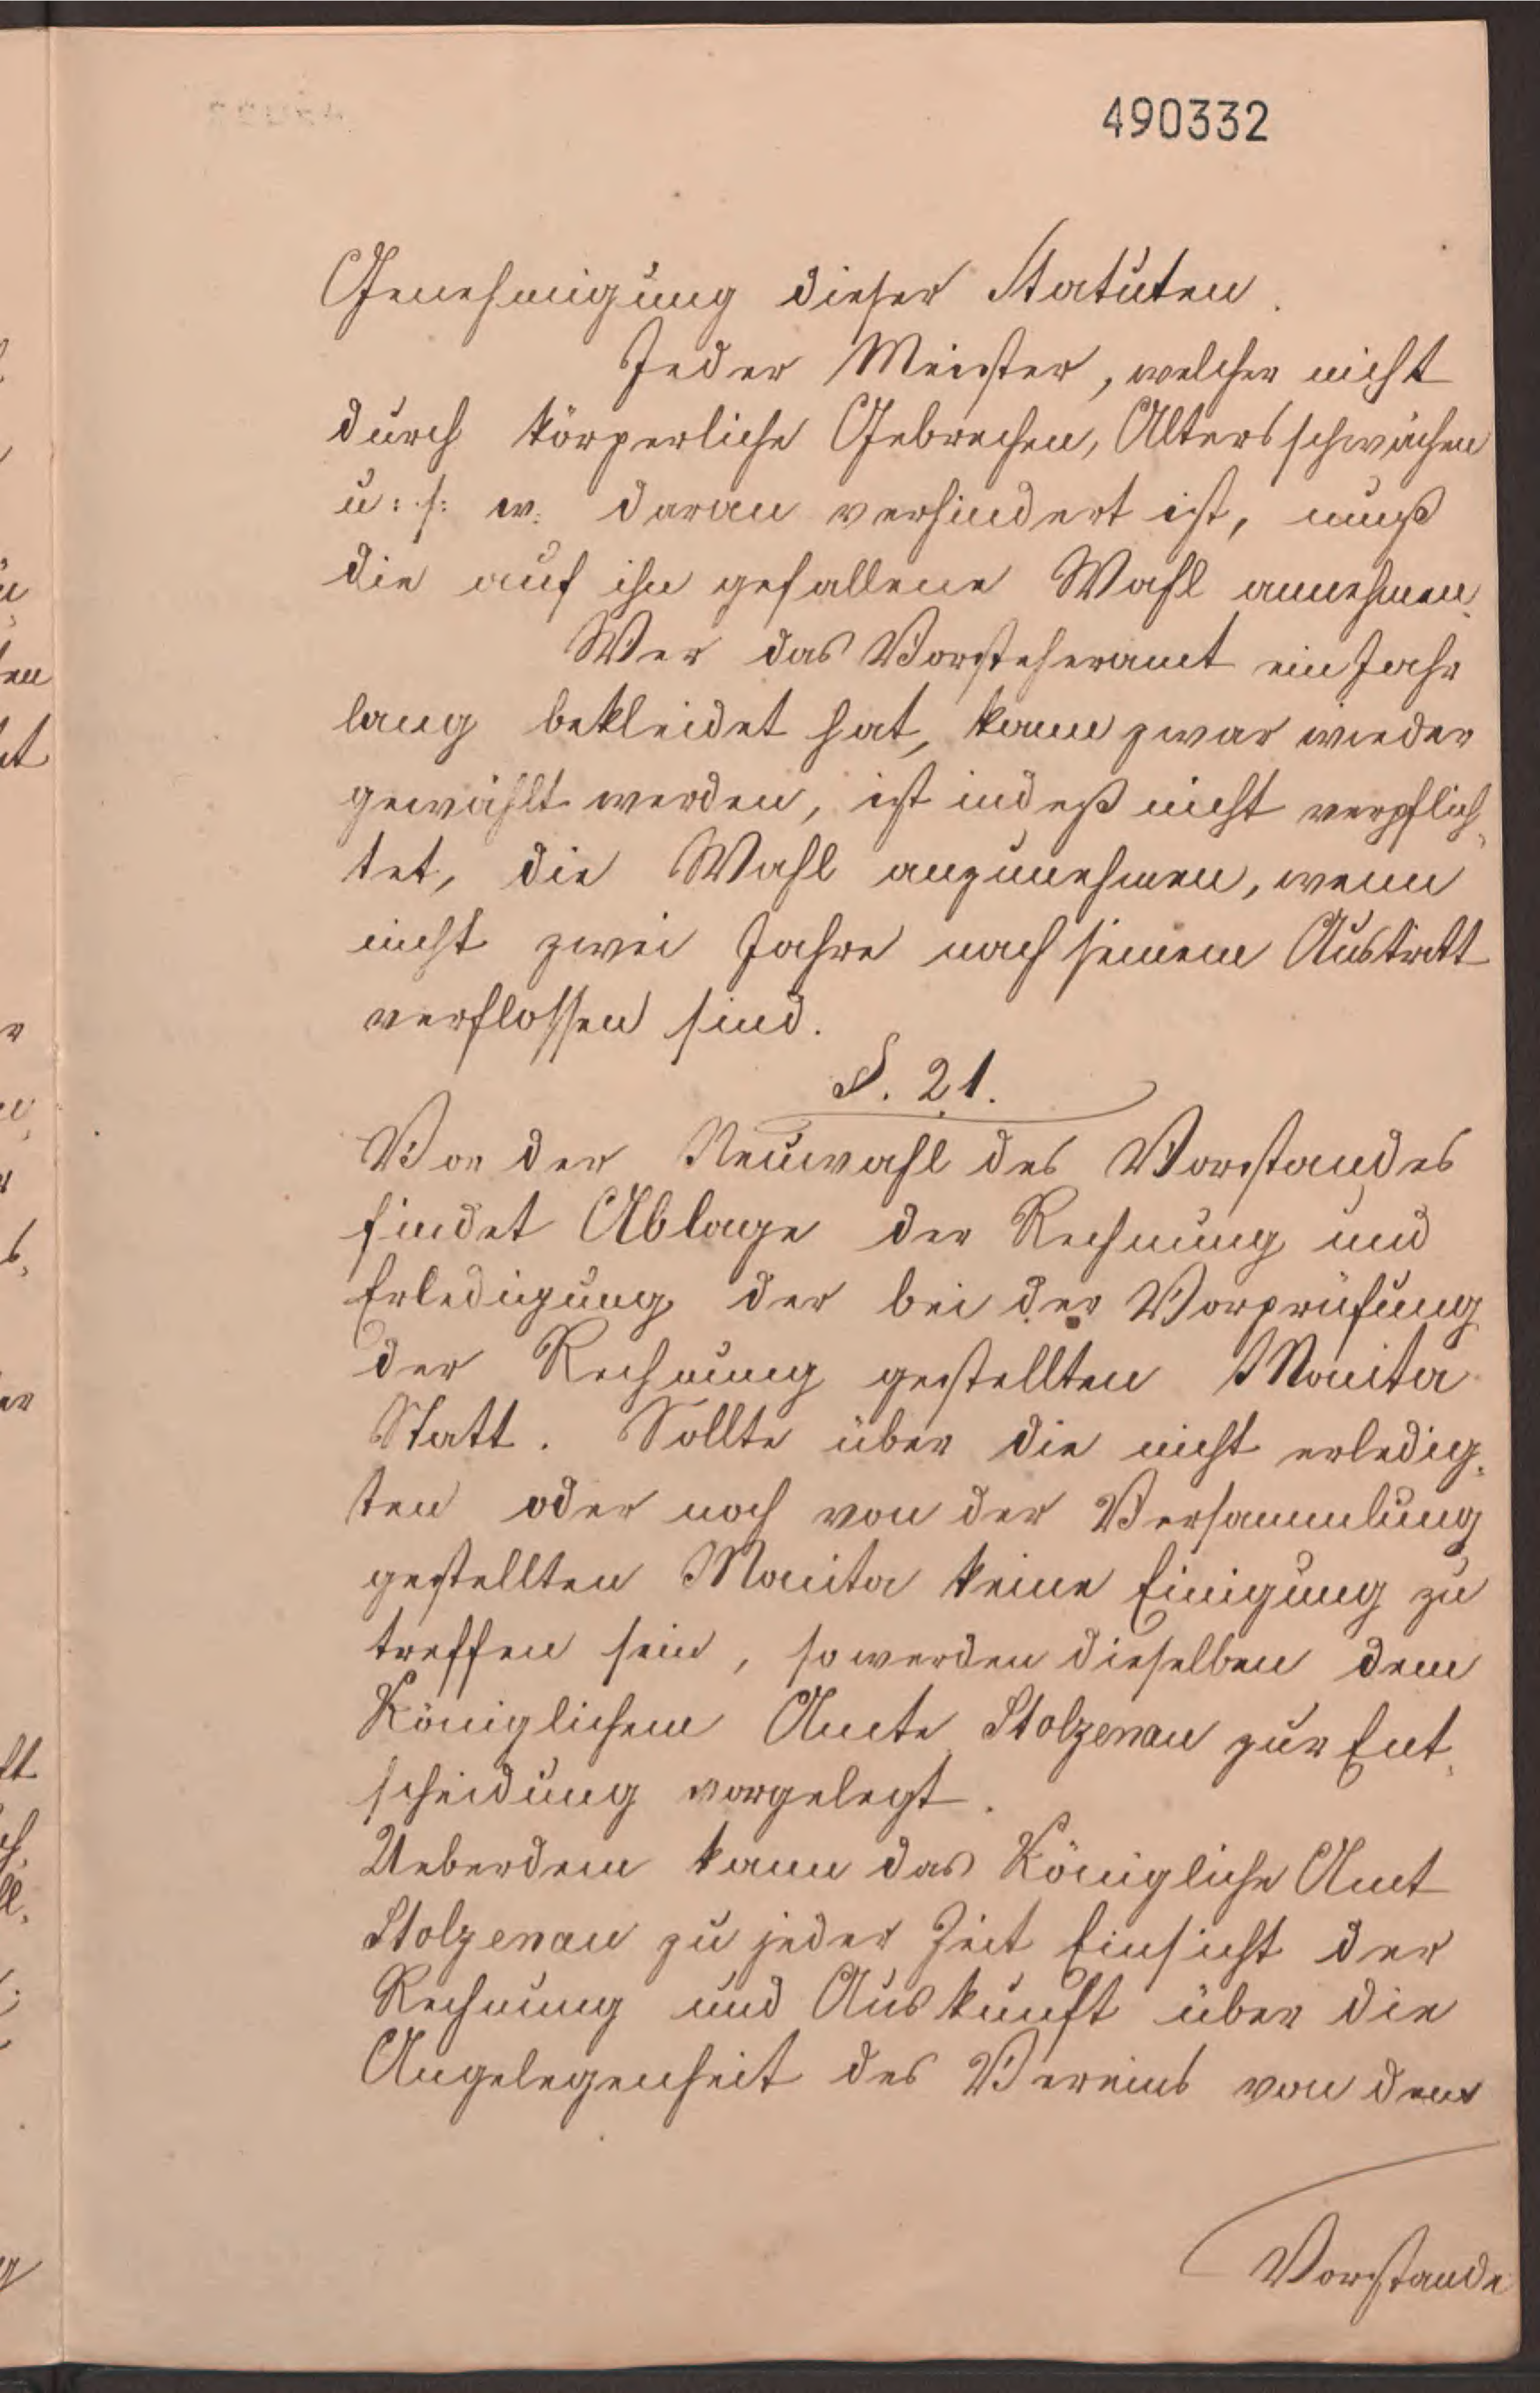 490332
Genehmigung dieser Statuten.
Jeder Meister, welcher nicht
durch körperliche Gebrechen, Altersschwächen
u: s: w: daran verhindert ist, muß
die auf ihn gefallene Wahl annehmen.
Wer das Vorsteheramt ein Jahr
lang bekleidet hat, kann zwar wieder
gewählt werden, ist indeß nicht verpflich-
tet, die Wahl anzunehmen, wenn
nicht zwei Jahre nach seinem Austritt
verflossen sind.
§. 21.
Vor der Neuwahl des Vorstandes
findet Ablage der Rechnung und
Erledigung der bei der Vorprüfung
der Rechnung gestellten Monita
Statt. Sollte über die nicht erledig-
ten oder noch von der Versammlung
gestellten Monita keine Einigung zu
treffen sein, so werden dieselben dem
Königlichen Amte Stolzenau zur Ent-
scheidung vorgelegt.
Ueberdem kann das Königliche Amt
Stolzenau zu jeder Zeit Einsicht der
Rechnung und Auskunft über die
Angelegenheit des Vereins von dem
Vorstande